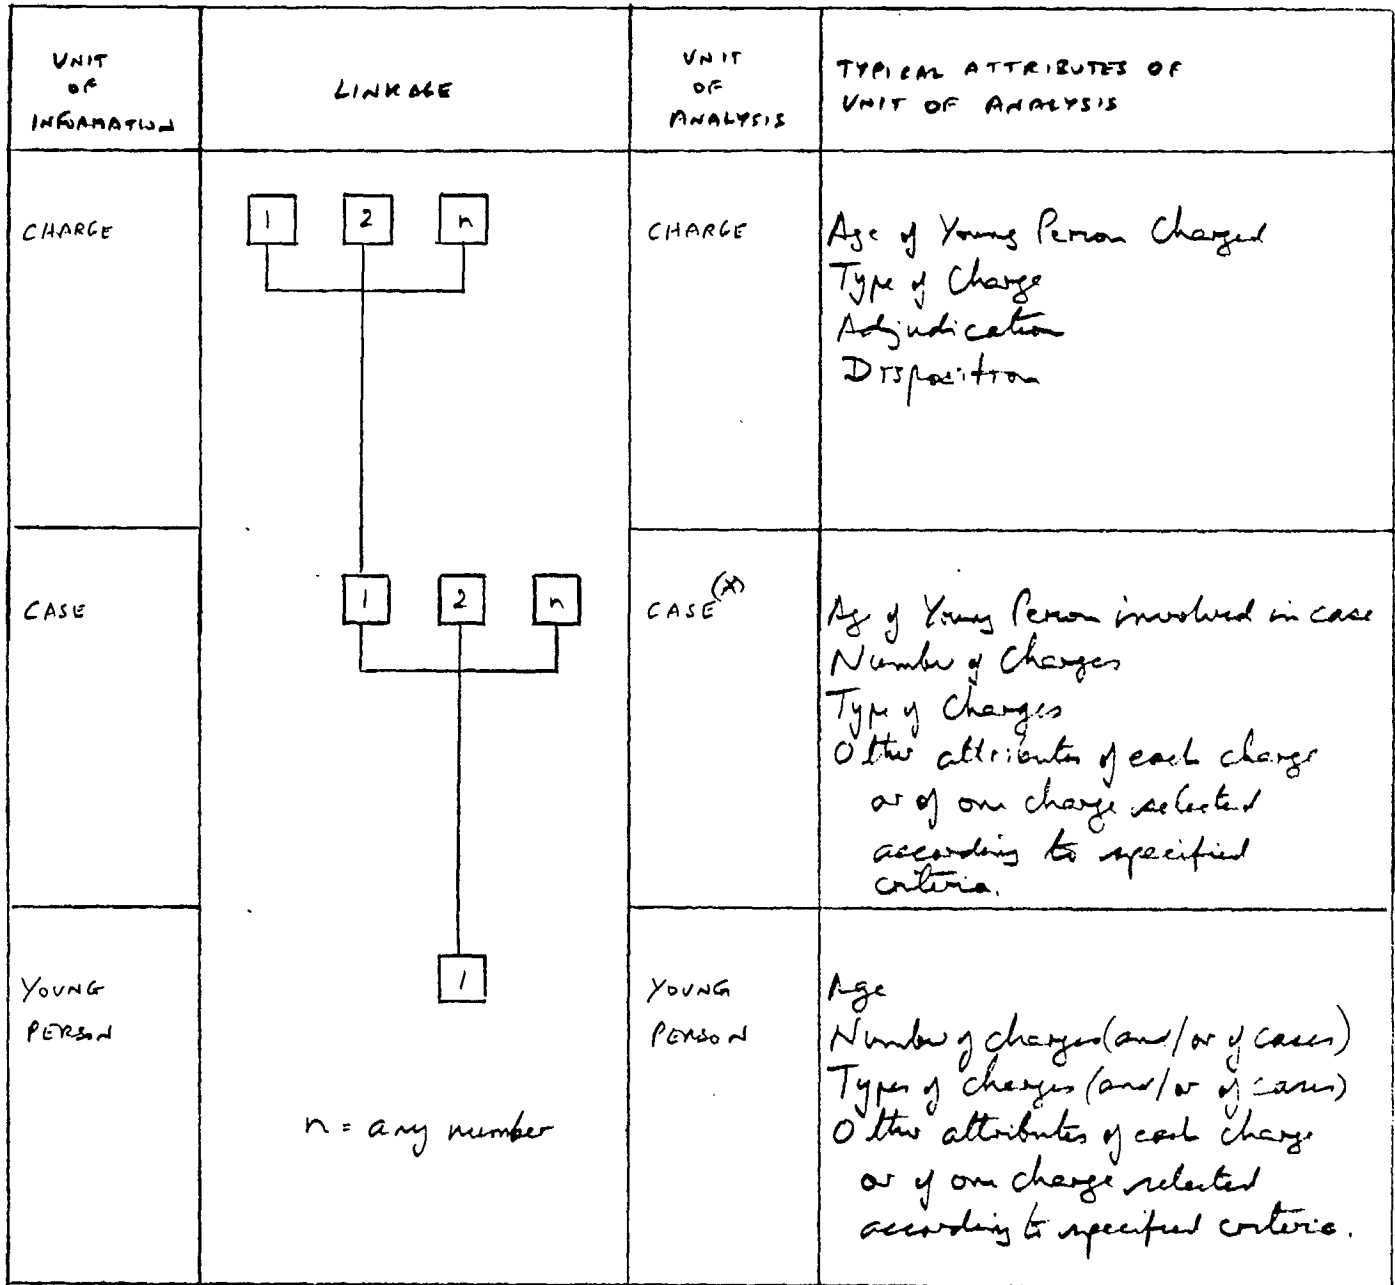 UNIT
OF
INFORMATION
LINKAGE
UNIT
OF
ANALYSIS
TYPICAL ATTRIBUTES OF
UNIT OF ANALYSIS
CHARGE
1 2 n
CHARGE
Age of Young Person Charged
Type of Charge
Adjudication
Disposition
CASE
1 2 n
CASE (x)
Age of Young Person involved in case
Number of Charges
Type of Charges
Other attributes of each charge
or of one charge selected
according to specified
criteria.
YOUNG
PERSON
1
n = any number
YOUNG
PERSON
Age
Number of charges (and/or of cases)
Types of charges (and/or of cases)
Other attributes of each charge
or of one charge selected
according to specified criteria.